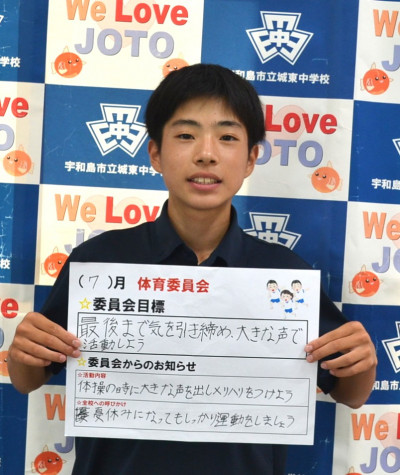 We Love
JOTO
宇和島市立城東中学校
We Love
JOTO
宇和島市立城東中学校
We Love
JOTO
宇和島市立城東中学校
We Love
JOTO
(7)月 体育委員会
☆委員会目標
最後まで気を引き締め、大きな声で
活動しよう
☆委員会からのお知らせ
☆活動内容
体操の時に大きな声を出しメリハリをつけよう
☆全校への呼びかけ
夏休みになってもしっかり運動をしましょう